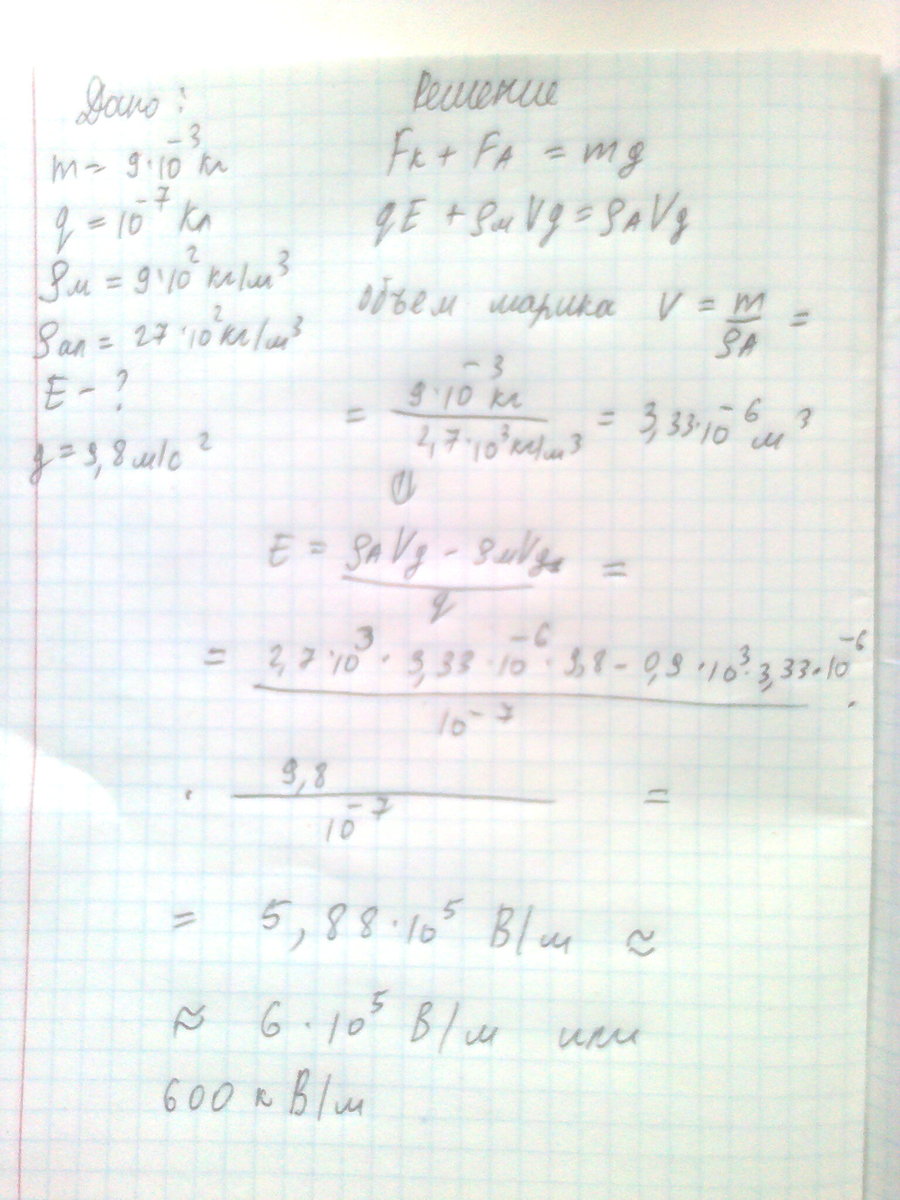 Дано:
m = 9·10⁻³ кг
q = 10⁻⁷ Кл
ρм = 9·10² кг/м³
ρал = 27·10² кг/м³
E - ?
g = 9,8 м/с²
Решение
Fк + FА = mg
qE + ρмVg = ρAVg
объем шарика V = m/ρA =
= 9·10⁻³ кг / 2,7·10³ кг/м³ = 3,33·10⁻⁶ м³
⇓
E = ρAVg - ρмVg / q =
= 2,7·10³ · 3,33·10⁻⁶ · 9,8 - 0,9·10³·3,33·10⁻⁶ / 10⁻⁷ ·
· 9,8 / 10⁻⁷ =
= 5,88·10⁵ В/м ≈
≈ 6·10⁵ В/м или
600 кВ/м